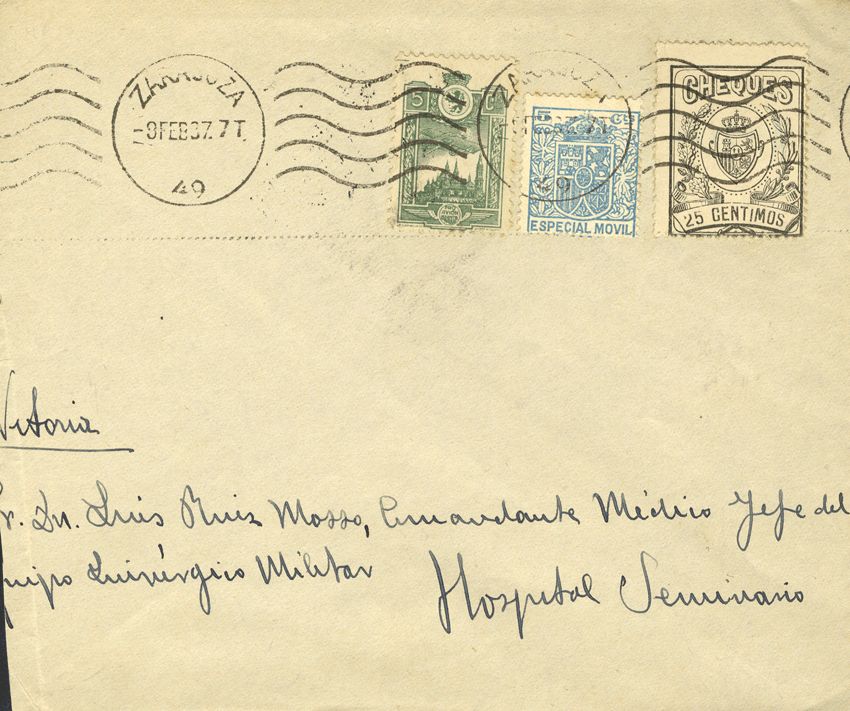 ZARAGOZA
9 FEB 37. 7 T
49
5 C
5 Cs
ESPECIAL MOVIL
CHEQUES
25 CENTIMOS
Vitoria
Sr. Dn. Luis Ruiz Mosso, Comandante Médico Jefe del
Equipo Quirúrgico Militar
Hospital Seminario